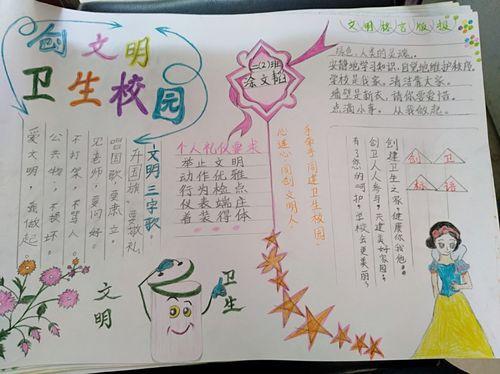 创文明
卫生校园
二(2)班
余文韬
文明校言版报
绿色,人类的灵魂。
安静地学习知识,自觉地维护秩序。
学校是我家,清洁靠大家。
墙壁是新衣,请你爱爱惜。
点滴小事,从我做起。
文明三字歌
升国旗,要敬礼
唱国歌,要肃立。
见老师,要问好。
不打架,不骂人。
公共物,不损坏。
爱文明,我做起。
个人礼仪要求
举止文明
动作优雅
行为检点
仪表端庄
着装得体
手牵手,同建卫生校园,
心连心,同创文明人。
创卫
标语
创建卫生之家,健康你我他。
创卫人人参与,共建美好家园。
有了您的呵护,学校会更美丽。
文明
卫生